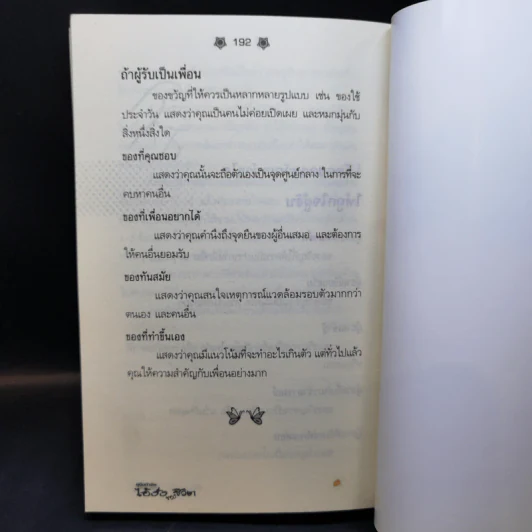 192
ถ้าผู้รับเป็นเพื่อน
ของขวัญที่ให้ควรเป็นหลากหลายรูปแบบ เช่น ของใช้
ประจำวัน แสดงว่าคุณเป็นคนไม่ค่อยเปิดเผย และหมกมุ่นกับ
สิ่งหนึ่งสิ่งใด
ของที่คุณชอบ
แสดงว่าคุณนั้นจะถือตัวเองเป็นจุดศูนย์กลาง ในการที่จะ
คบหาคนอื่น
ของที่เพื่อนอยากได้
แสดงว่าคุณคำนึงถึงจุดยืนของผู้อื่นเสมอ และต้องการ
ให้คนอื่นยอมรับ
ของทันสมัย
แสดงว่าคุณสนใจเหตุการณ์แวดล้อมรอบตัวมากกว่า
ตนเอง และคนอื่น
ของที่ทำขึ้นเอง
แสดงว่าคุณมีแนวโน้มที่จะทำอะไรเกินตัว แต่ทั่วไปแล้ว
คุณให้ความสำคัญกับเพื่อนอย่างมาก